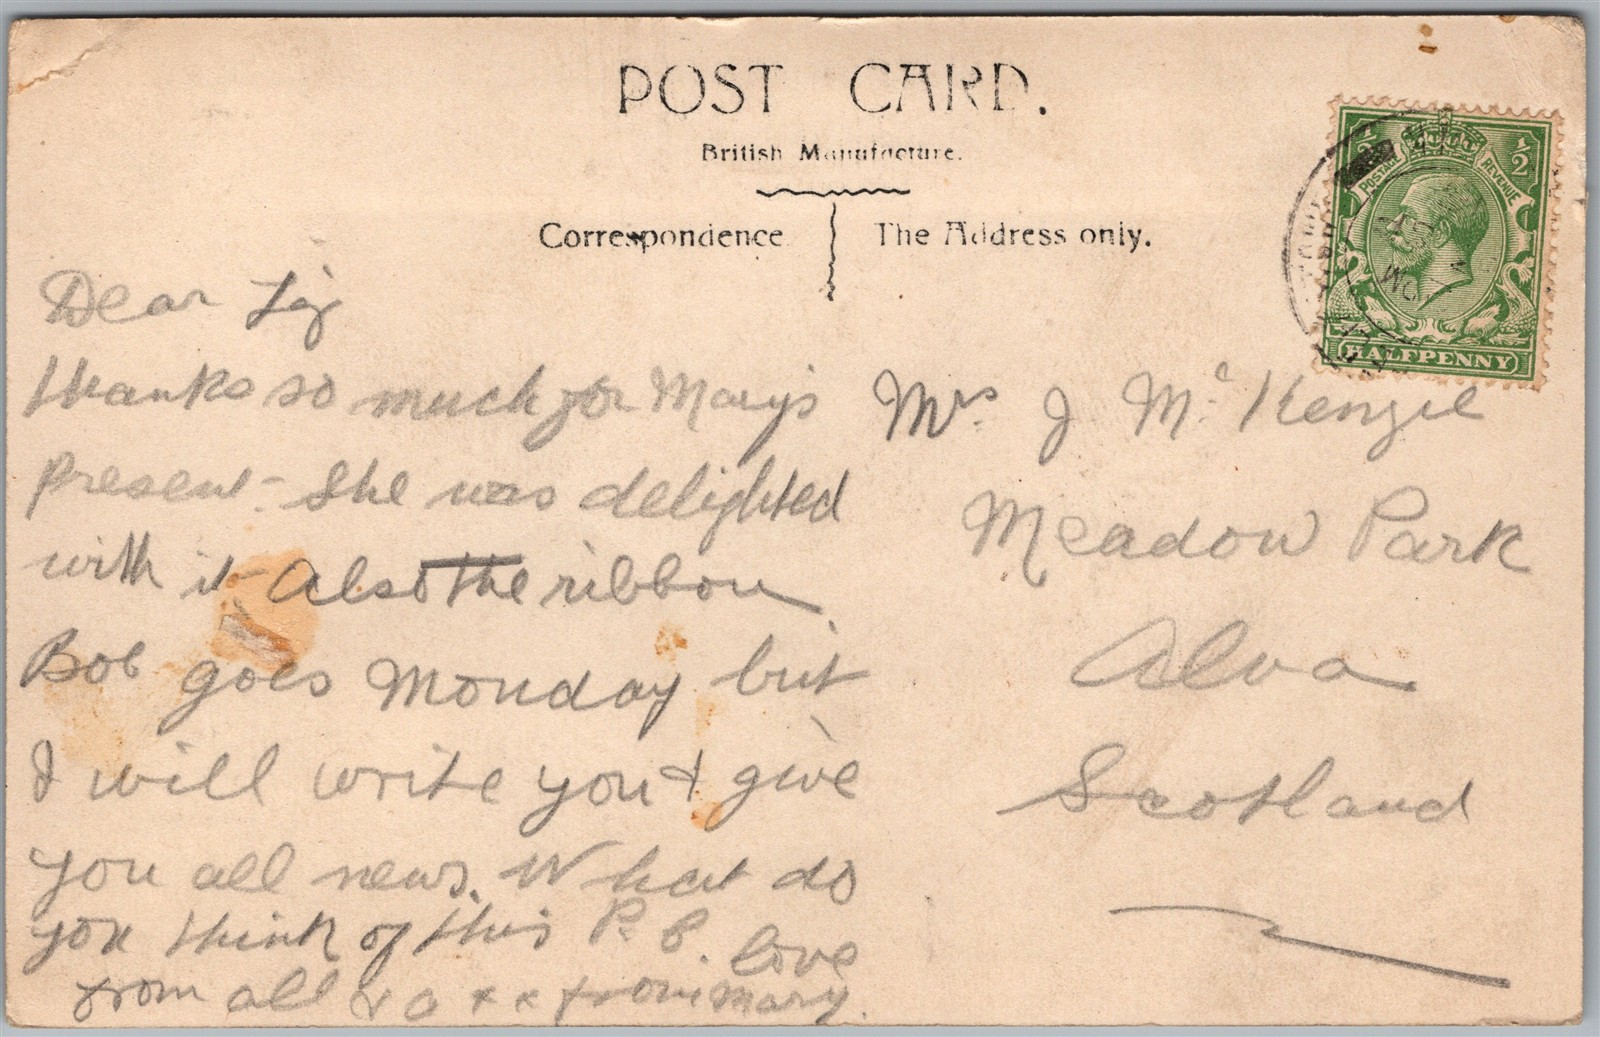 POST CARD.
British Manufacture.
Correspondence
The Address only.
½ ½
POSTAGE REVENUE
HALFPENNY
Dear Liz
thanks so much for Mary's
present - She was delighted
with it - Also the ribbon
Bob goes Monday but
I will write you & give
you all news. What do
you think of this P.C. love
from all & a x x from Mary.
Mrs J Mc Kenzie
Meadow Park
Alva
Scotland